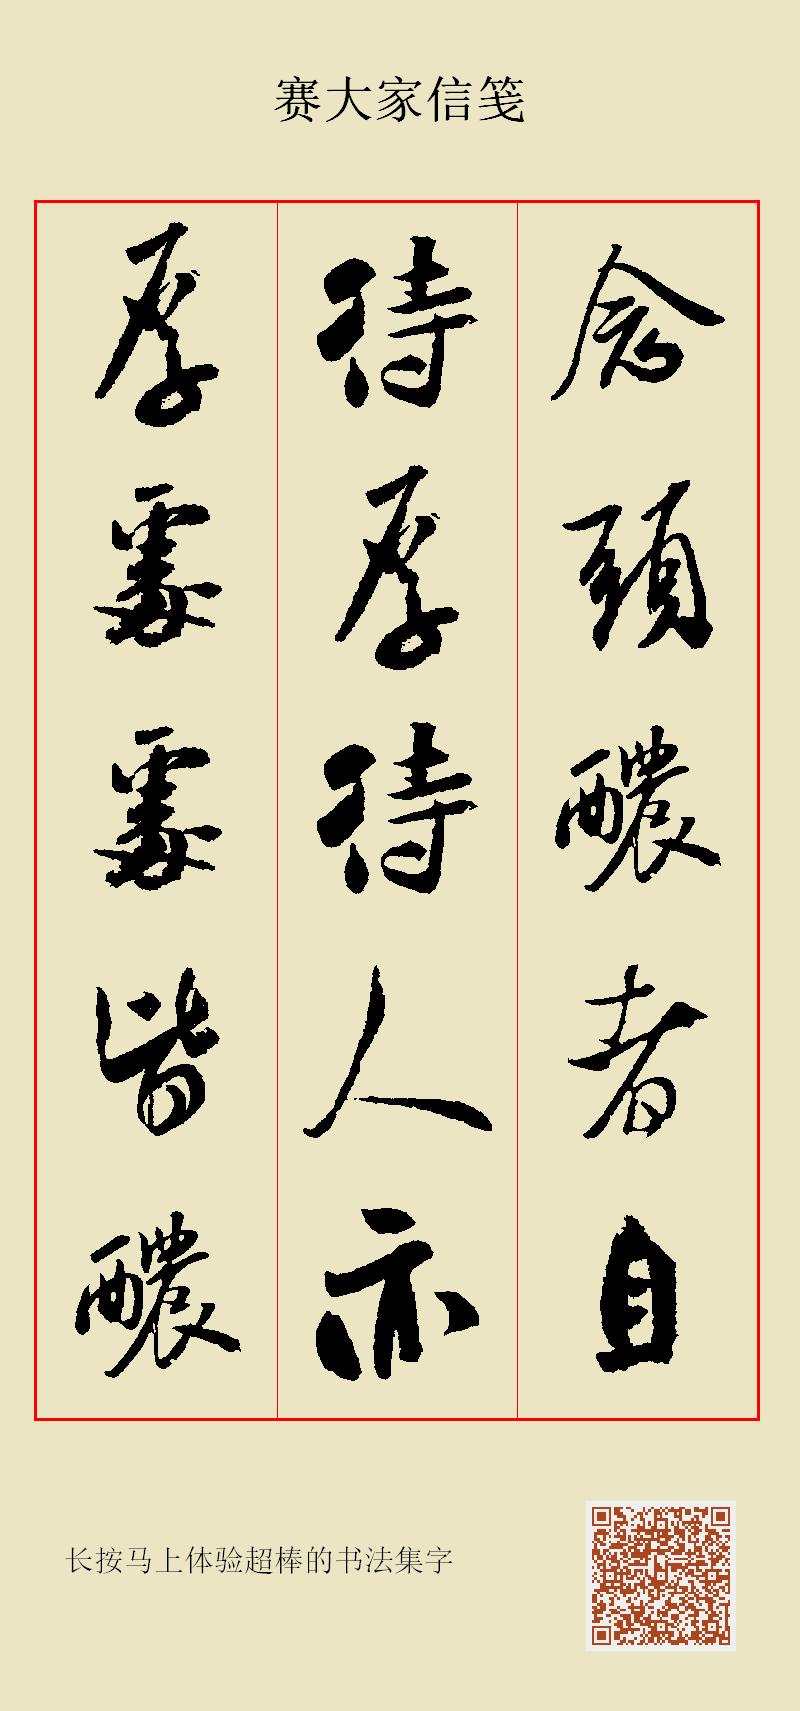 赛大家信笺
念頭醲者自
待厚待人亦
厚處處皆醲
长按马上体验超棒的书法集字